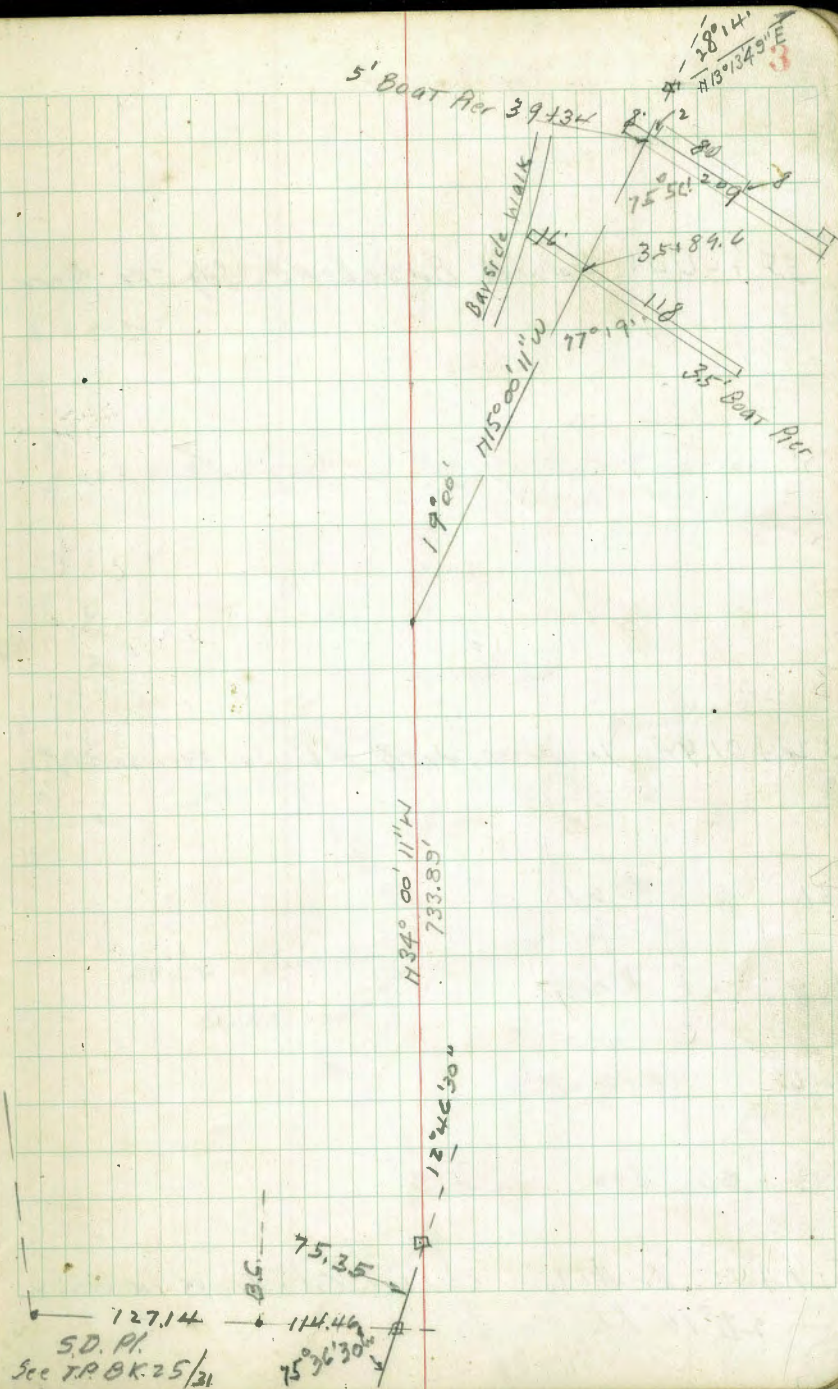 3
28°14'
N13°13'49"E
5' Boat Pier 39+34
8'
2
80
209
8
75°50'
Bayside Walk
16'
35+89.6
118
77°19'
3.5' Boat Pier
N15°00'11"W
19°00'
N34°00'11"W
733.89'
12°46'30"
75.35
B.C.
127.14
114.46
75°36'30"
S.D. Pl.
See T.P. BK. 25/31